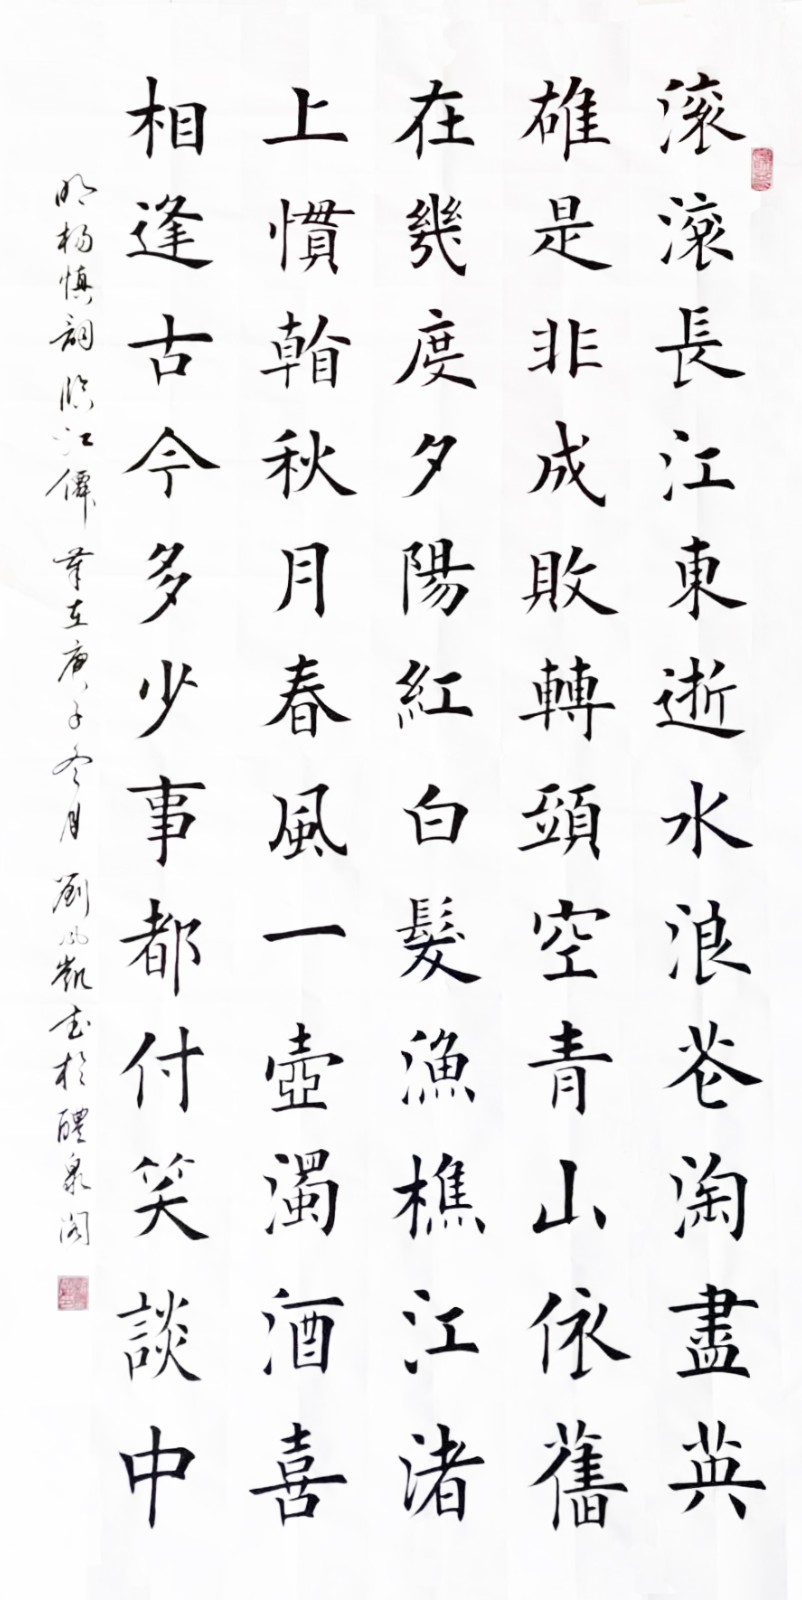 滚滚長江東逝水浪花淘盡英
雄是非成敗轉頭空青山依舊
在幾度夕陽紅白髮漁樵江渚
上慣看秋月春風一壺濁酒喜
相逢古今多少事都付笑談中
明楊慎詞臨江僊 歲在庚子冬月 劉鳳凱書於醴泉閣